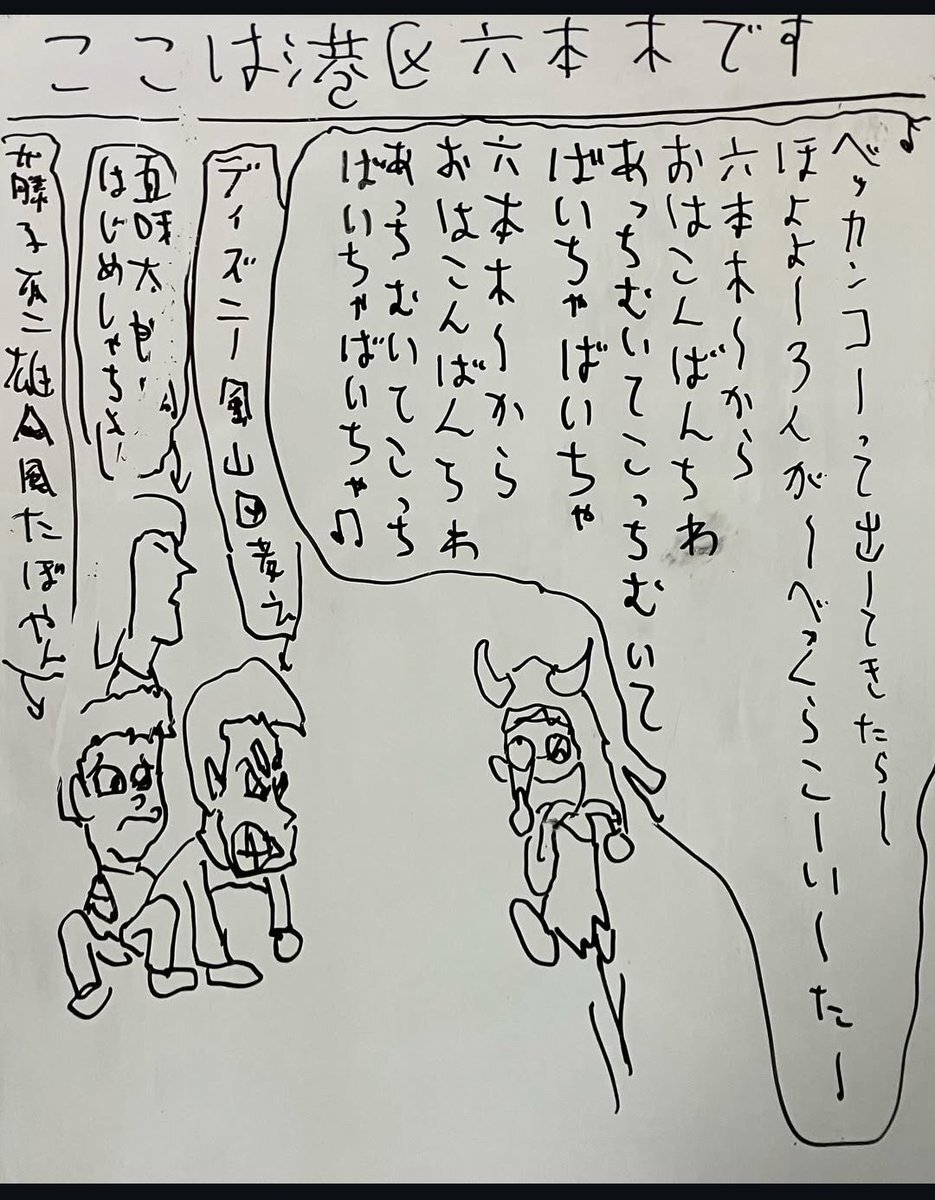 ここは港区六本木です
ベッカンコーって出ーてきたらー
ほよよーろんが〜べっくらこーい〜た〜
六本木〜から
おはこんばんちわ
あっちむいてこっちむいて
ばいちゃばいちゃ
六本木〜から
おはこんばんちわ
あっちむいてこっち
ばいちゃばいちゃ♫
ディズニー風山田孝之
五味太郎
はじめしゃちょー
藤子不二雄A風たぼやん